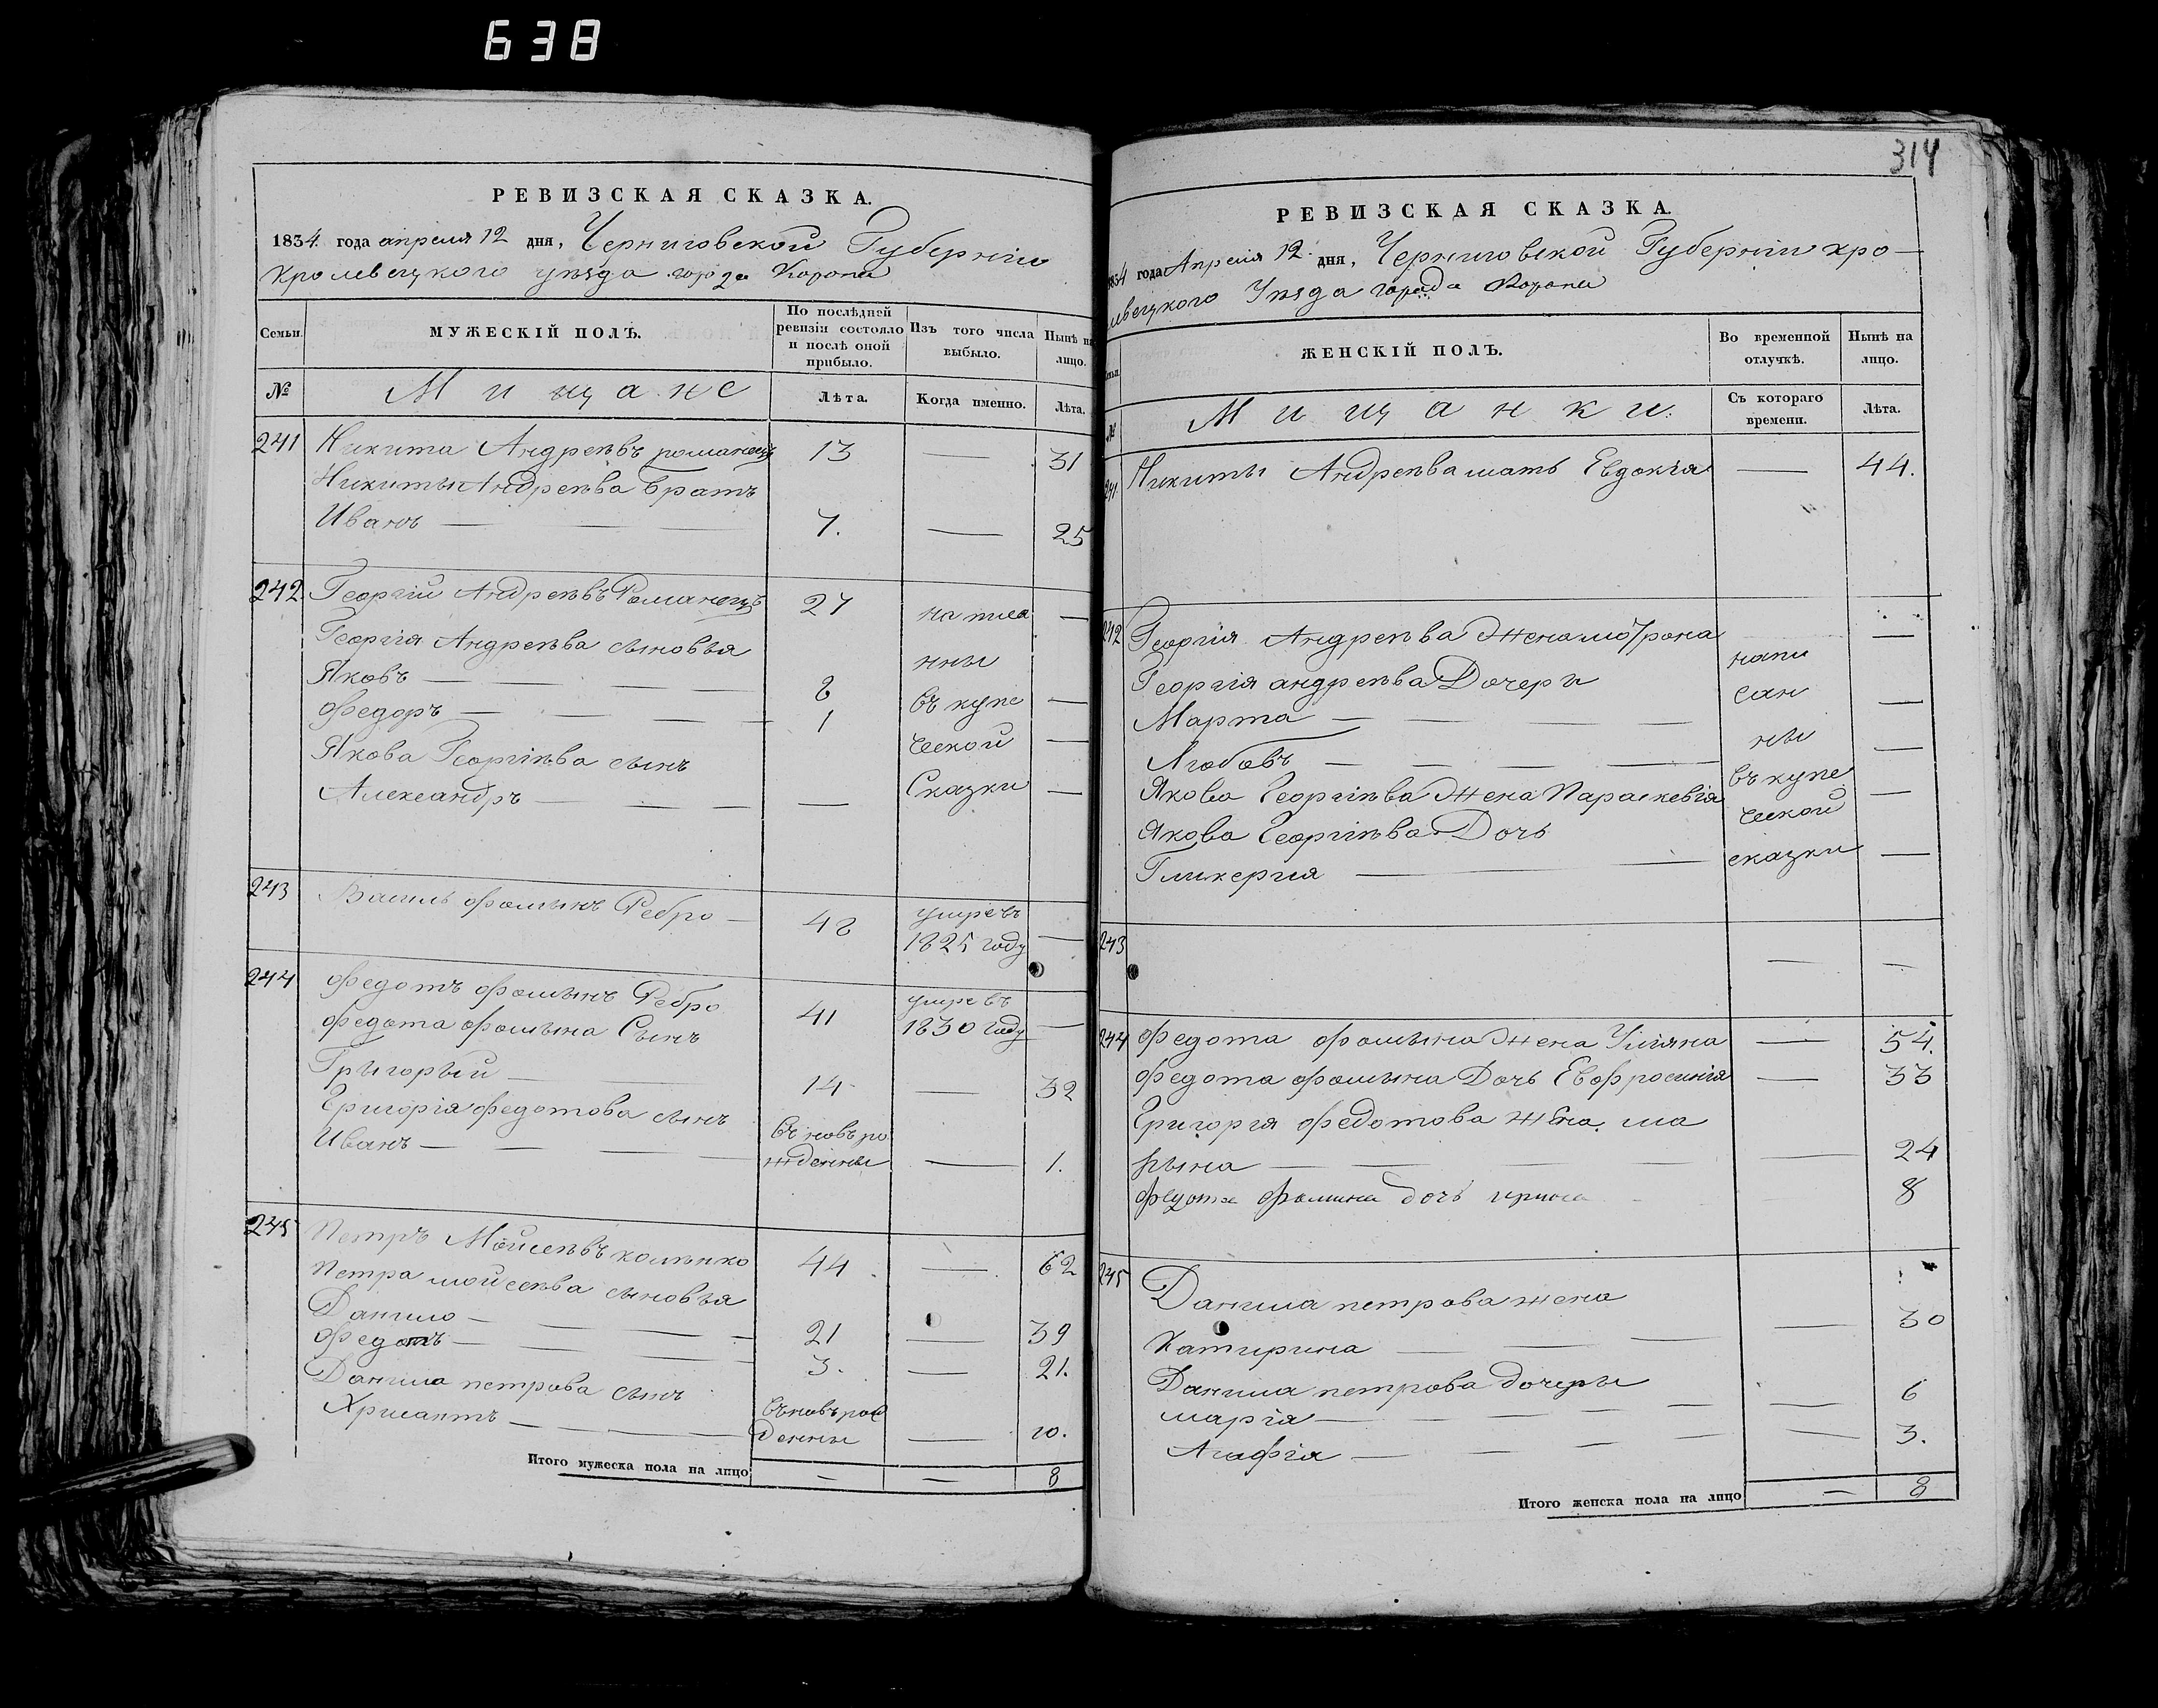 638
РЕВИЗСКАЯ СКАЗКА.
1834 года апреля 12 дня, Черниговской Губернiи
Кролевецкого уѣзда города Коропа
Семьи.
МУЖЕСКІЙ ПОЛЪ.
По послѣдней ревизіи состояло и послѣ оной прибыло.
Изъ того числа выбыло.
Нынѣ на лицо.
№
Мищане
Лѣта.
Когда именно.
Лѣта.
241 Никита Андреѣвъ романецъ 13 — 31
Никиты Андреѣва братъ
Иванъ — 7. — 25
242 Георгiй Андреѣвъ Романецъ 27 написа —
Георгiя Андреѣва сыновья нны
Яковъ — 8 въ купе —
Федоръ — 1 ческой —
Якова Георгiѣва сынъ
Александръ — — Сказки —
243 Василь Фоминъ Ребро — 48 умре въ
1825 году —
244 Федотъ Фоминъ Ребро 41 умре въ
1830 году —
Федота Фомина Сынъ
Григорый — 14 — 32
Григорiя Федотова сынъ
Иванъ — въ новъ ро
жденны — 1.
245 Петръ Мойсеѣвъ колѣнко 44 — 62
Петра мойсеѣва сыновья
Данило — 21 — 39
Федотъ — 3. — 21.
Данила петрова сынъ
Хрисантъ — въ новъ рож
денны — 10.
Итого мужеска пола на лицо — — 8
314
РЕВИЗСКАЯ СКАЗКА.
1834 года Апреля 12 дня, Черниговской Губернiи кро—
левецкого Уѣзда города Коропа
ЖЕНСКІЙ ПОЛЪ.
Во временной отлучкѣ.
Нынѣ на лицо.
№
Мищанки.
Съ котораго времени.
Лѣта.
241 Никиты Андреѣва мать Евдокiя — 44.
242 Георгiя Андреѣва Жена мотрона —
напи
Георгiя андреѣва Дочери сан
Марта — —
ны
Любовъ — —
въ купе
Якова Георгiѣва Жена Параскевiя —
ческой
Якова Георгiѣва Дочь
Гликерия — сказки —
243 — —
244 Федота Фомина Жена Улiяна — 54.
Федота Фомина Дочь Евфросинiя — 33
Григория Федотова жена ма
рына — — 24
Федота Фомина дочь ирина 8
245 Данила петрова жена
Катирина — — 30
Данила петрова дочеры
марiя — — 6
Агафiя — — 3.
Итого женска пола на лицо — 8